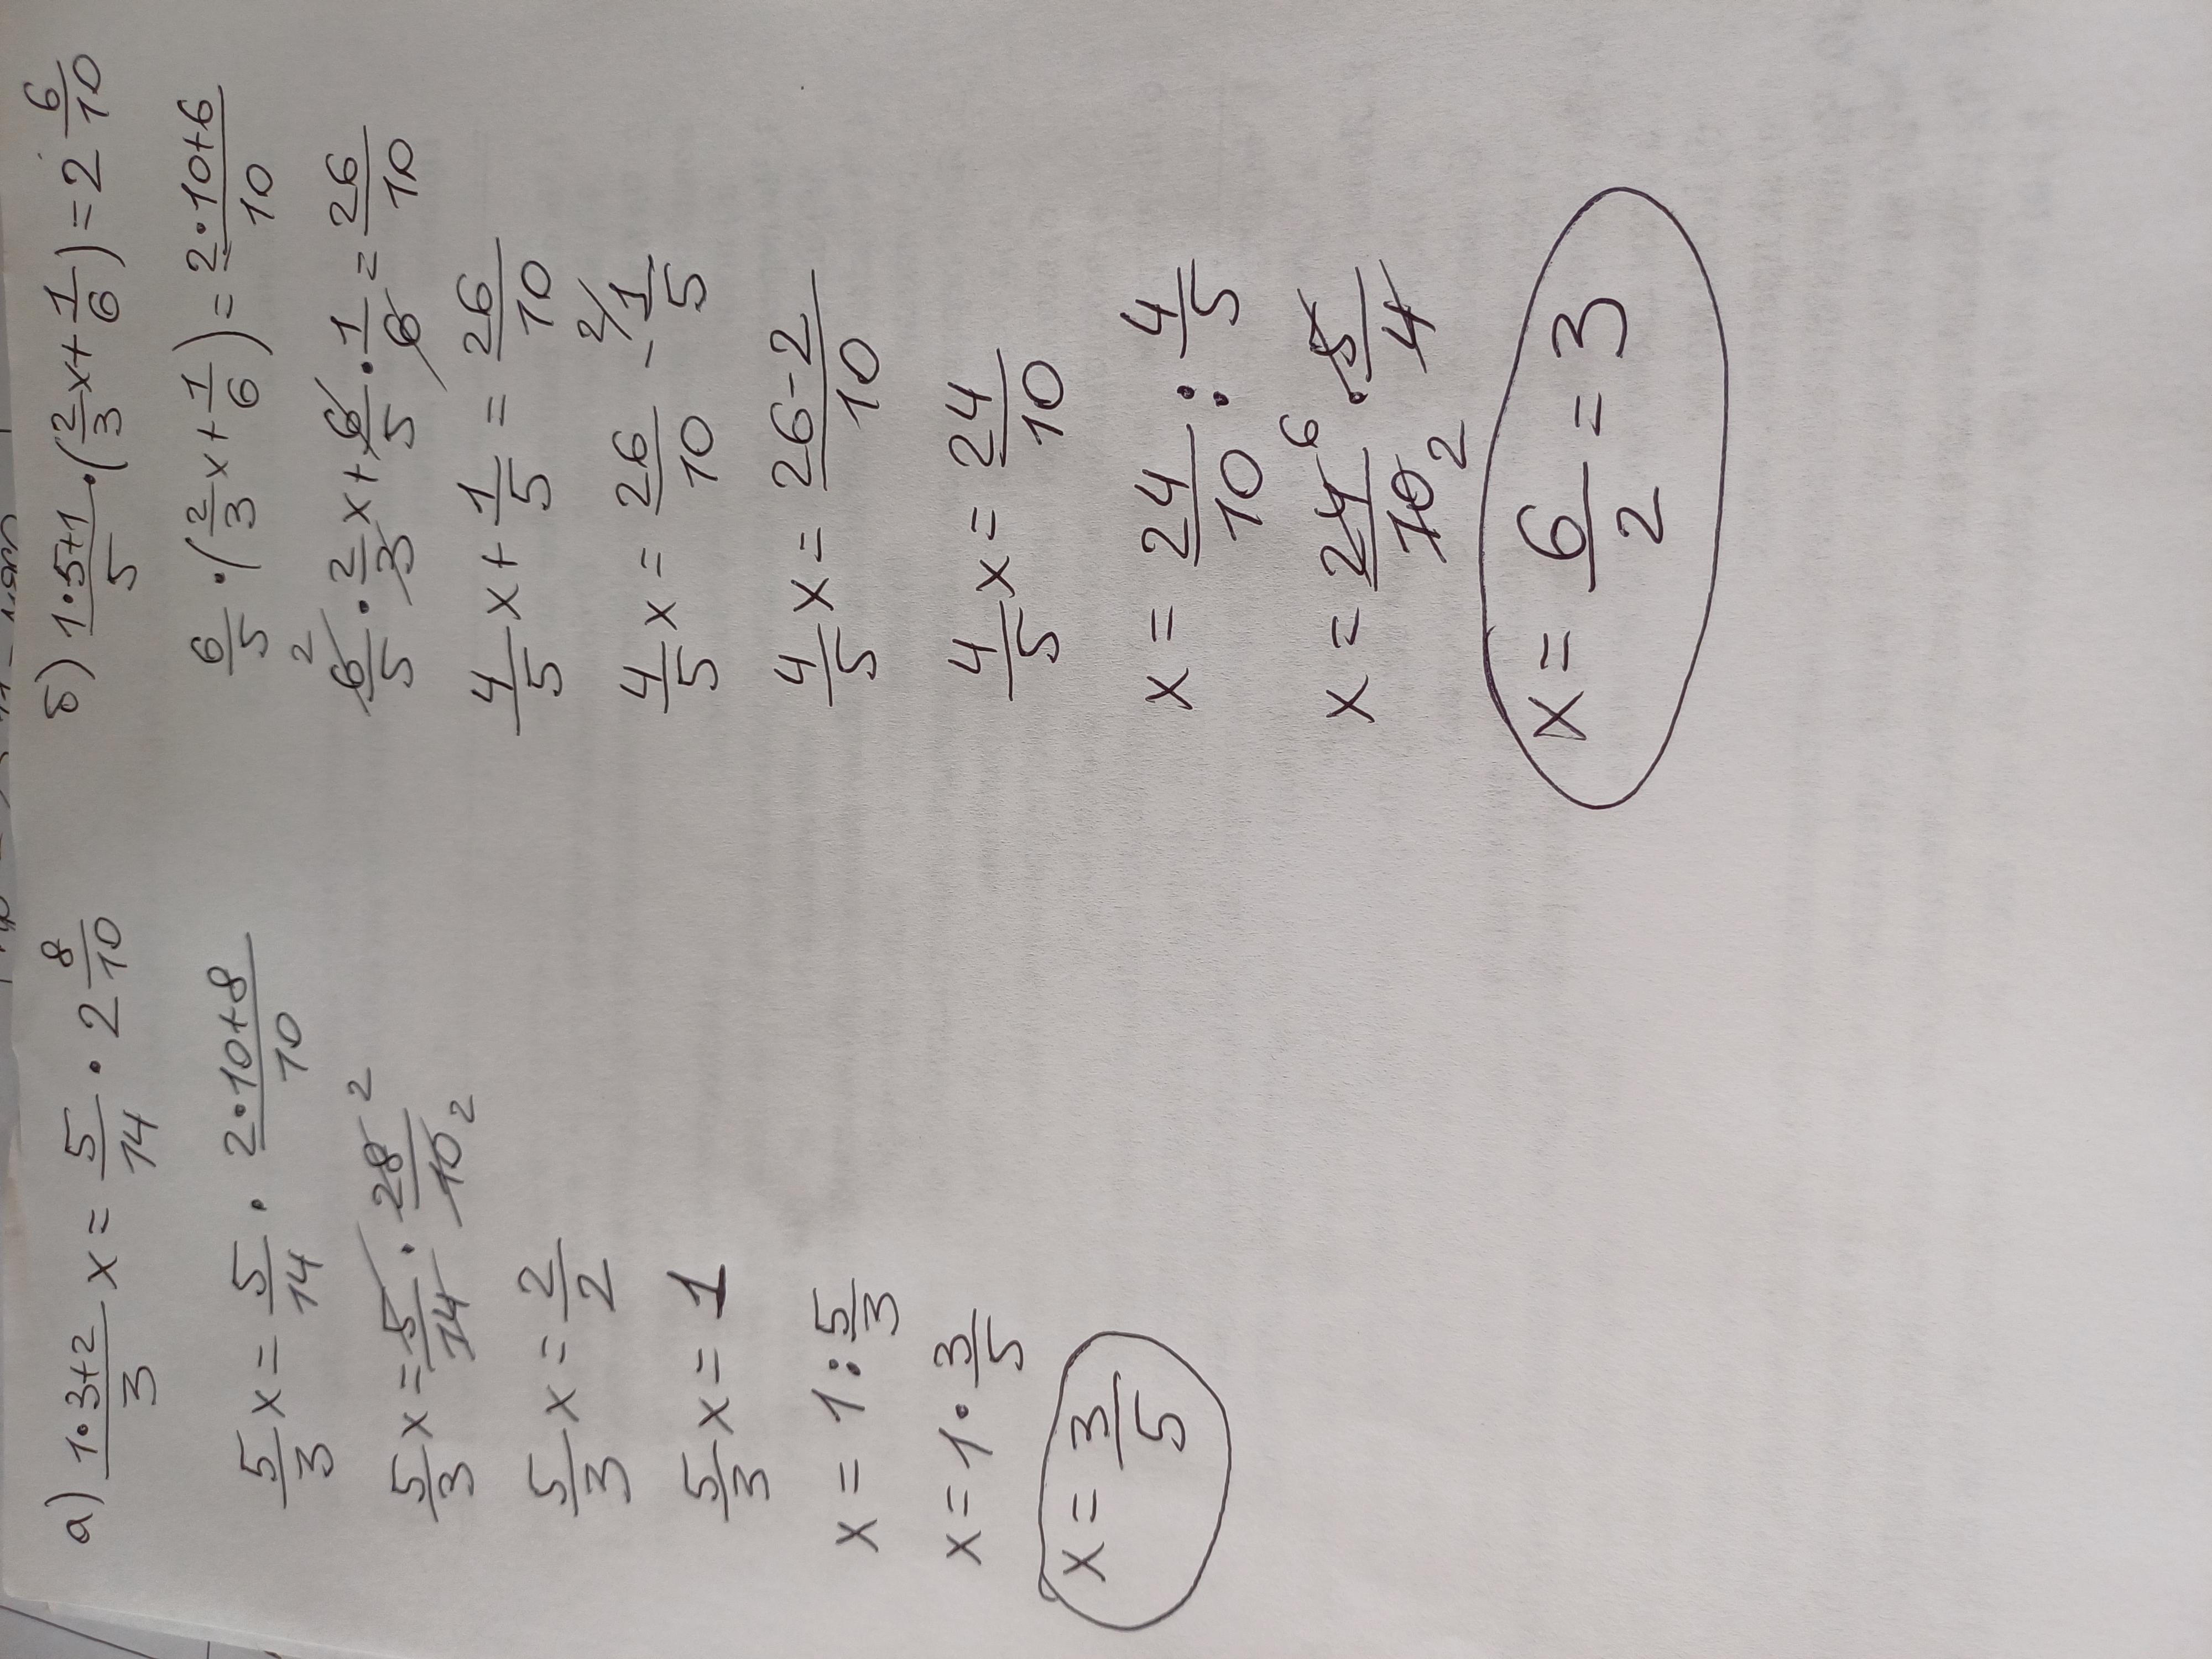 а) (1·3+2)/3 x = 5/14 · 2 8/10
5/3 x = 5/14 · (2·10+8)/10
5/3 x = 5/14 · 28/10 2 2
5/3 x = 2/2
5/3 x = 1
x = 1 : 5/3
x = 1 · 3/5
x = 3/5
б) (1·5+1)/5 · (2/3 x + 1/6) = 2 6/10
6/5 · (2/3 x + 1/6) = (2·10+6)/10
2 6/5 · 2/3 x + 6/5 · 1/6 = 26/10
4/5 x + 1/5 = 26/10
4/5 x = 26/10 - 2/ 1/5
4/5 x = (26-2)/10
4/5 x = 24/10
x = 24/10 : 4/5
x = 24/10 6 2 · 5/4
x = 6/2 = 3